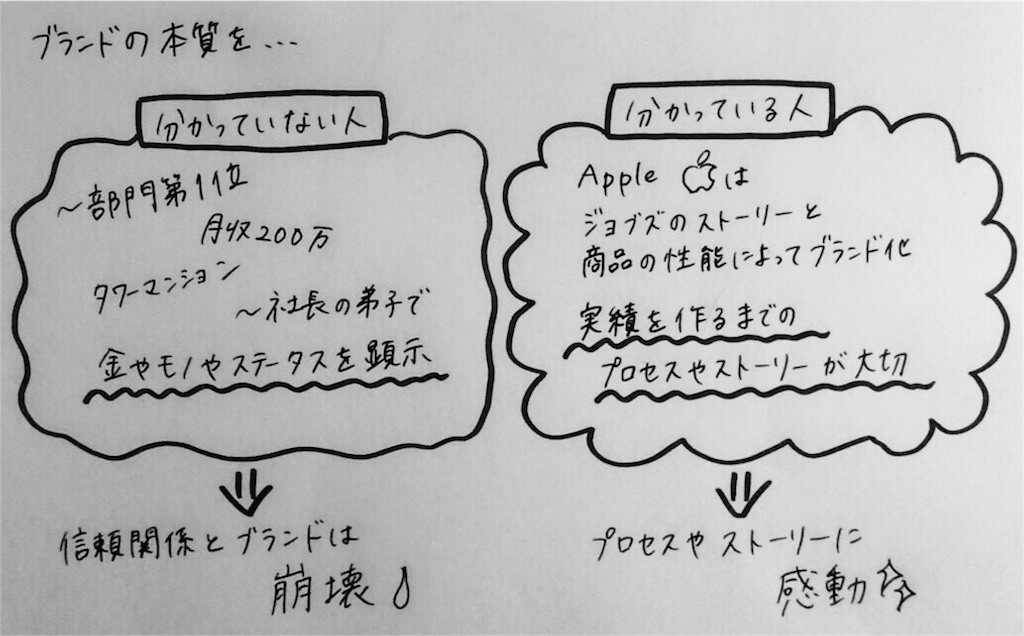 ブランドの本質を...
分かっていない人
～部門第1位
月収200万
タワーマンション
～社長の弟子で
金やモノやステータスを顕示
信頼関係とブランドは
崩壊
分かっている人
Apple は
ジョブズのストーリーと
商品の性能によってブランド化
実績を作るまでの
プロセスやストーリーが大切
プロセスやストーリーに
感動